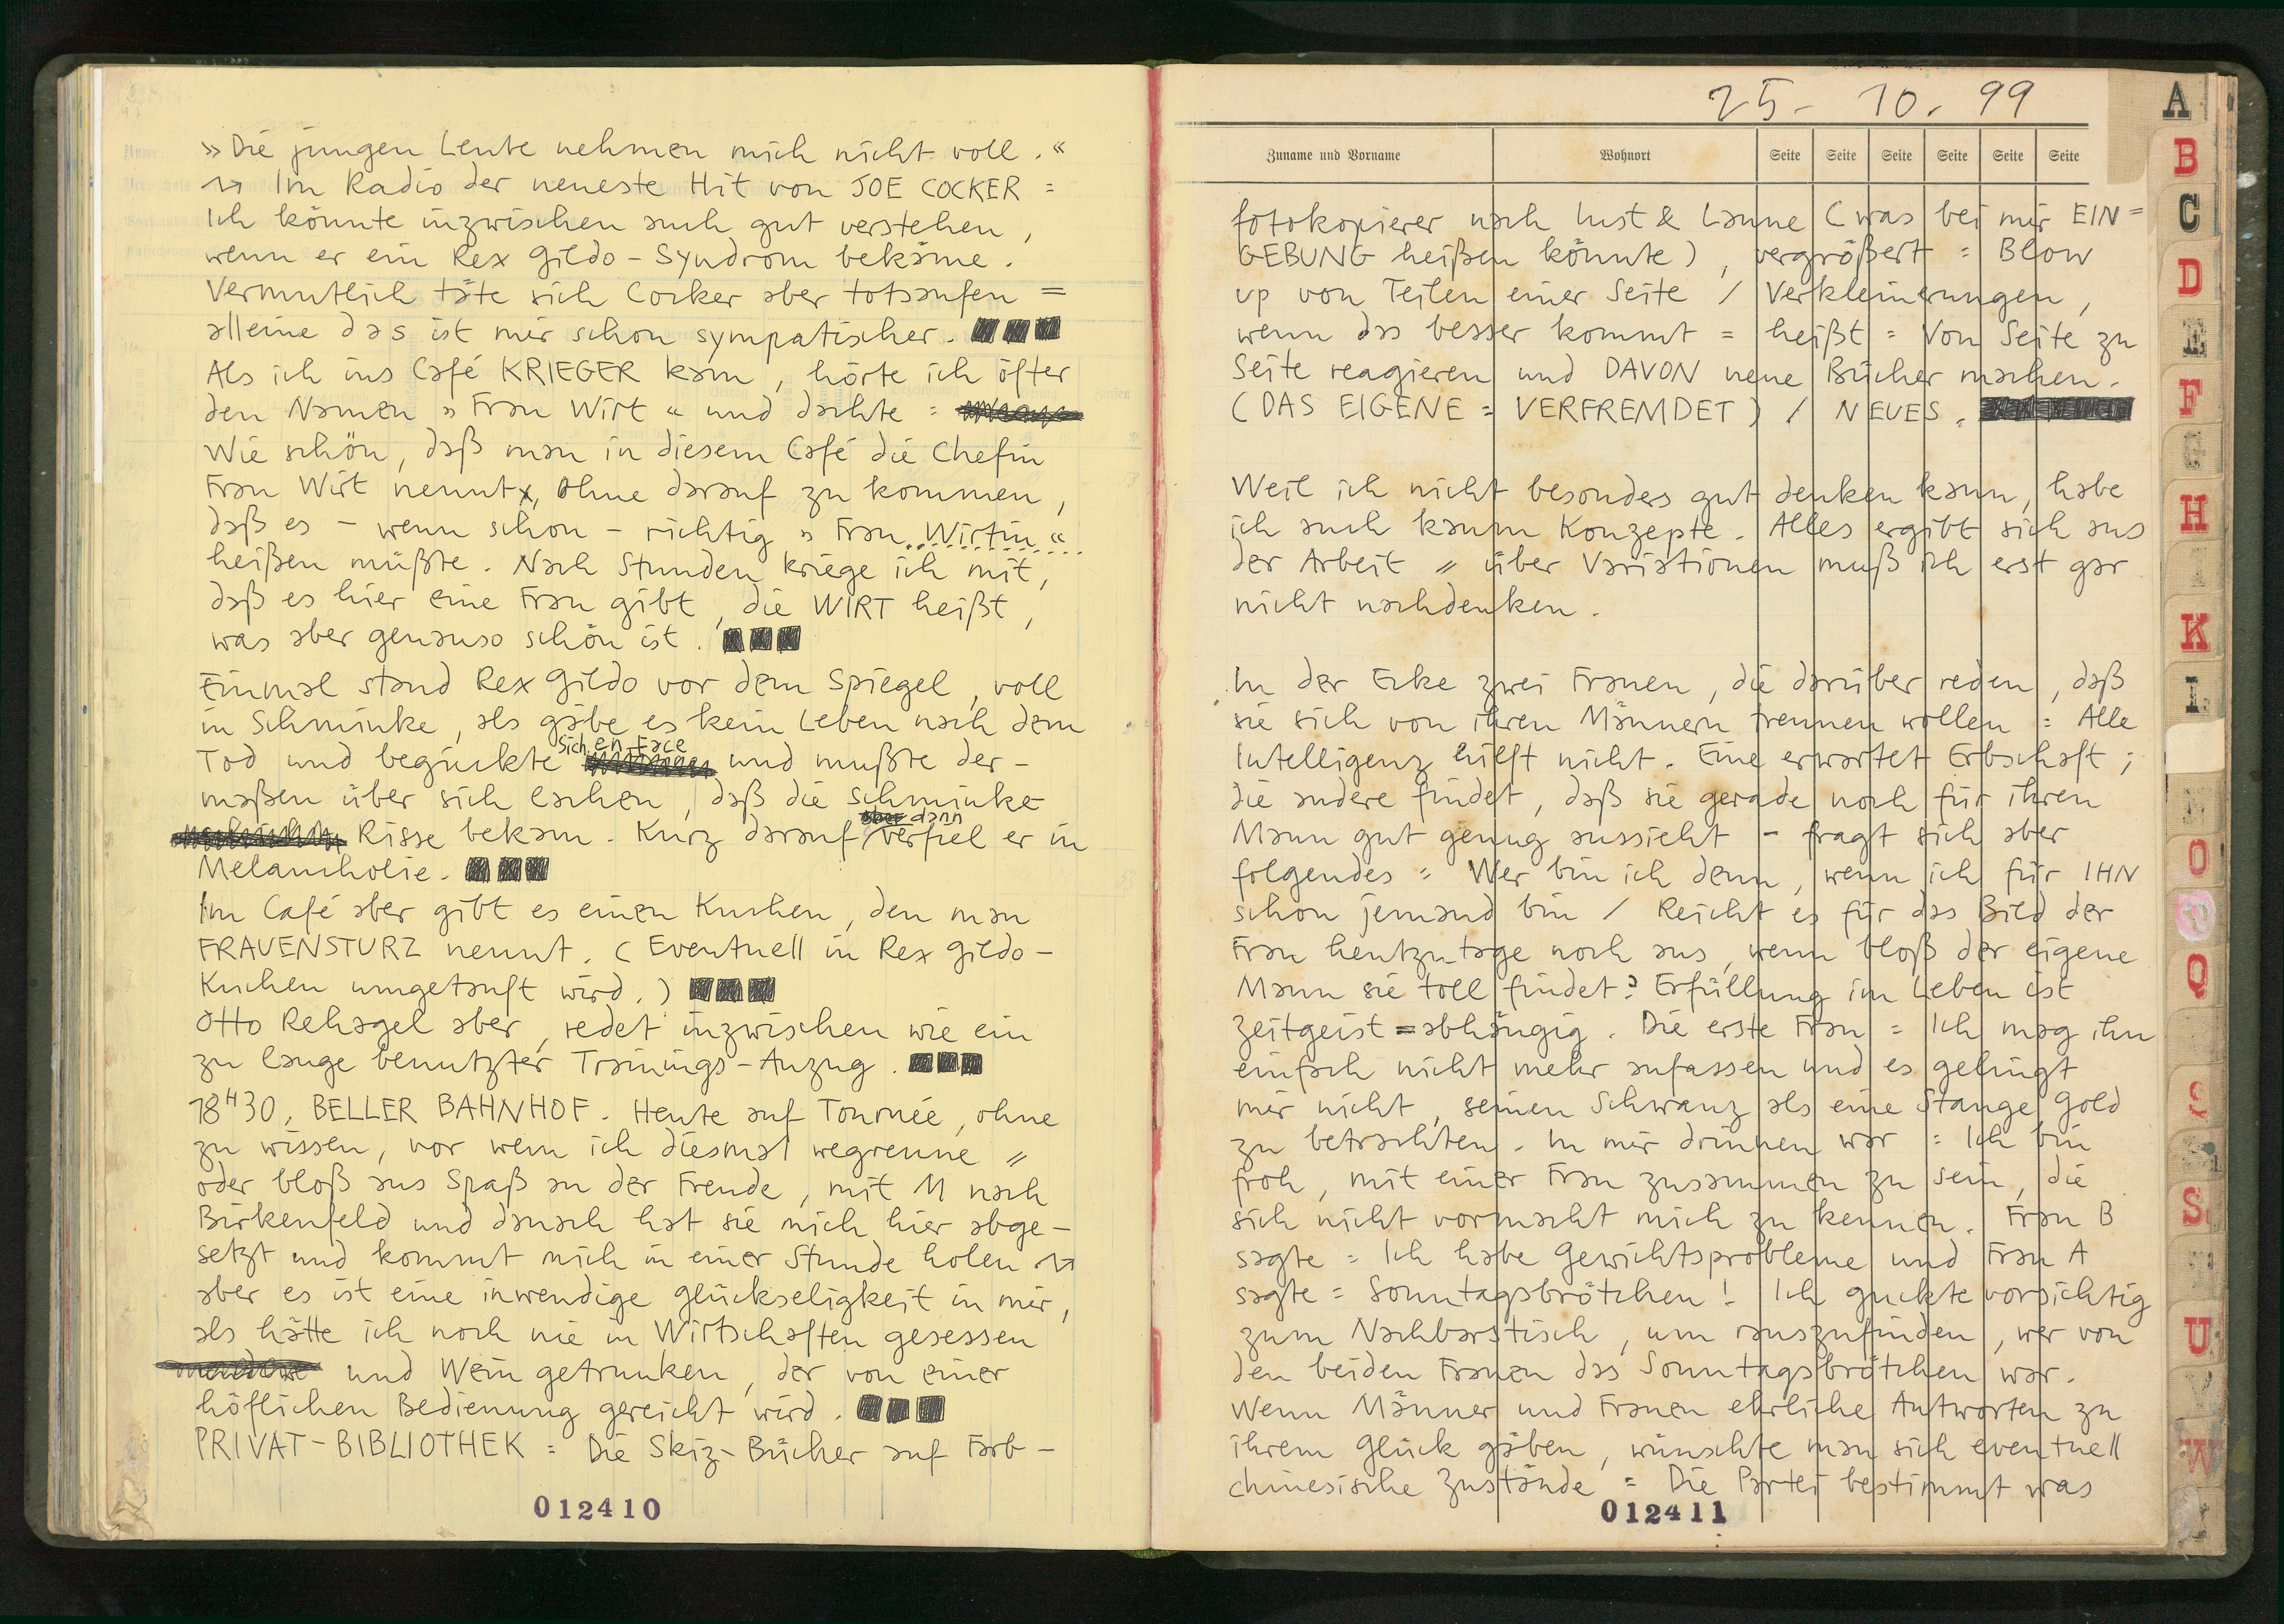 »Die jungen Leute nehmen mich nicht voll.«
Im Radio der neueste Hit von JOE COCKER =
Ich könnte inzwischen auch gut verstehen,
wenn er ein Rex Gildo-Syndrom bekäme.
Vermutlich täte sich Cocker aber totsaufen =
alleine das ist mir schon sympatischer.
Als ich ins Café KRIEGER kam, hörte ich öfter
den Namen »Frau Wirt« und dachte =
Wie schön, daß man in diesem Café die Chefin
Frau Wirt nennt, ohne darauf zu kommen,
daß es – wenn schon – richtig »Frau Wirtin«
heißen müßte. Nach Stunden kriege ich mit,
daß es hier eine Frau gibt, die WIRT heißt,
was aber genauso schön ist.
Einmal stand Rex Gildo vor dem Spiegel, voll
in Schminke, als gäbe es kein Leben nach dem
Tod und beguckte sich en face und mußte der-
maßen über sich lachen, daß die Schminke
Risse bekam. Kurz darauf aber dann verfiel er in
Melancholie.
Im Café aber gibt es einen Kuchen, den man
FRAUENSTURZ nennt. (Eventuell in Rex Gildo-
Kuchen umgetauft wird.)
Otto Rehagel aber, redet inzwischen wie ein
zu lange benutzter Trainings-Anzug.
18H30, BELLER BAHNHOF. Heute auf Tournée, ohne
zu wissen, vor wem ich diesmal wegrenne =
oder bloß aus Spaß an der Freude, mit M nach
Birkenfeld und danach hat sie mich hier abge-
setzt und kommt mich in einer Stunde holen
aber es ist eine inwendige Glückseligkeit in mir,
als hätte ich noch nie in Wirtschaften gesessen
und Wein getrunken, der von einer
höflichen Bedienung gereicht wird.
PRIVAT-BIBLIOTHEK = Die Skiz-Bücher auf Farb-
012410
25-10.99
Zuname und Vorname Wohnort Seite Seite Seite Seite Seite Seite
fotokopierer nach Lust & Laune (was bei mir EIN=
GEBUNG heißen könnte), vergrößert = Blow
up von Teilen einer Seite / Verkleinerungen,
wenn das besser kommt = heißt = Von Seite zu
Seite reagieren und DAVON neue Bücher machen.
(DAS EIGENE = VERFREMDET) / NEUES.
Weil ich nicht besondes gut denken kann, habe
ich auch kaum Konzepte. Alles ergibt sich aus
der Arbeit = über Variationen muß ich erst gar
nicht nachdenken.
In der Ecke zwei Frauen, die darüber reden, daß
sie sich von ihren Männern trennen wollen = Alle
Intelligenz hilft nicht. Eine erwartet Erbschaft;
die andere findet, daß sie gerade noch für ihren
Mann gut genug aussieht – fragt sich aber
folgendes = Wer bin ich denn, wenn ich für IHN
schon jemand bin / Reicht es für das Bild der
Frau heutzutage noch aus, wenn bloß der eigene
Mann sie toll findet? Erfüllung im Leben ist
zeitgeist=abhängig. Die erste Frau = Ich mag ihn
einfach nicht mehr anfassen und es gelingt
mir nicht, seinen Schwanz als eine Stange Gold
zu betrachten. In mir drinnen war = Ich bin
froh, mit einer Frau zusammen zu sein, die
sich nicht vormacht mich zu kennen. Frau B
sagte = Ich habe Gewichtsprobleme und Frau A
sagte = Sonntagsbrötchen! Ich guckte vorsichtig
zum Nachbarstisch, um rauszufinden, wer von
den beiden Frauen das Sonntagsbrötchen war.
Wenn Männer und Frauen ehrliche Antworten zu
ihrem Glück gäben, wünschte man sich eventuell
chinesische Zustände = Die Partei bestimmt was
012411
A
B
C
D
E
F
G
H
I
K
L
O
P
Q
S
S
U
V
W